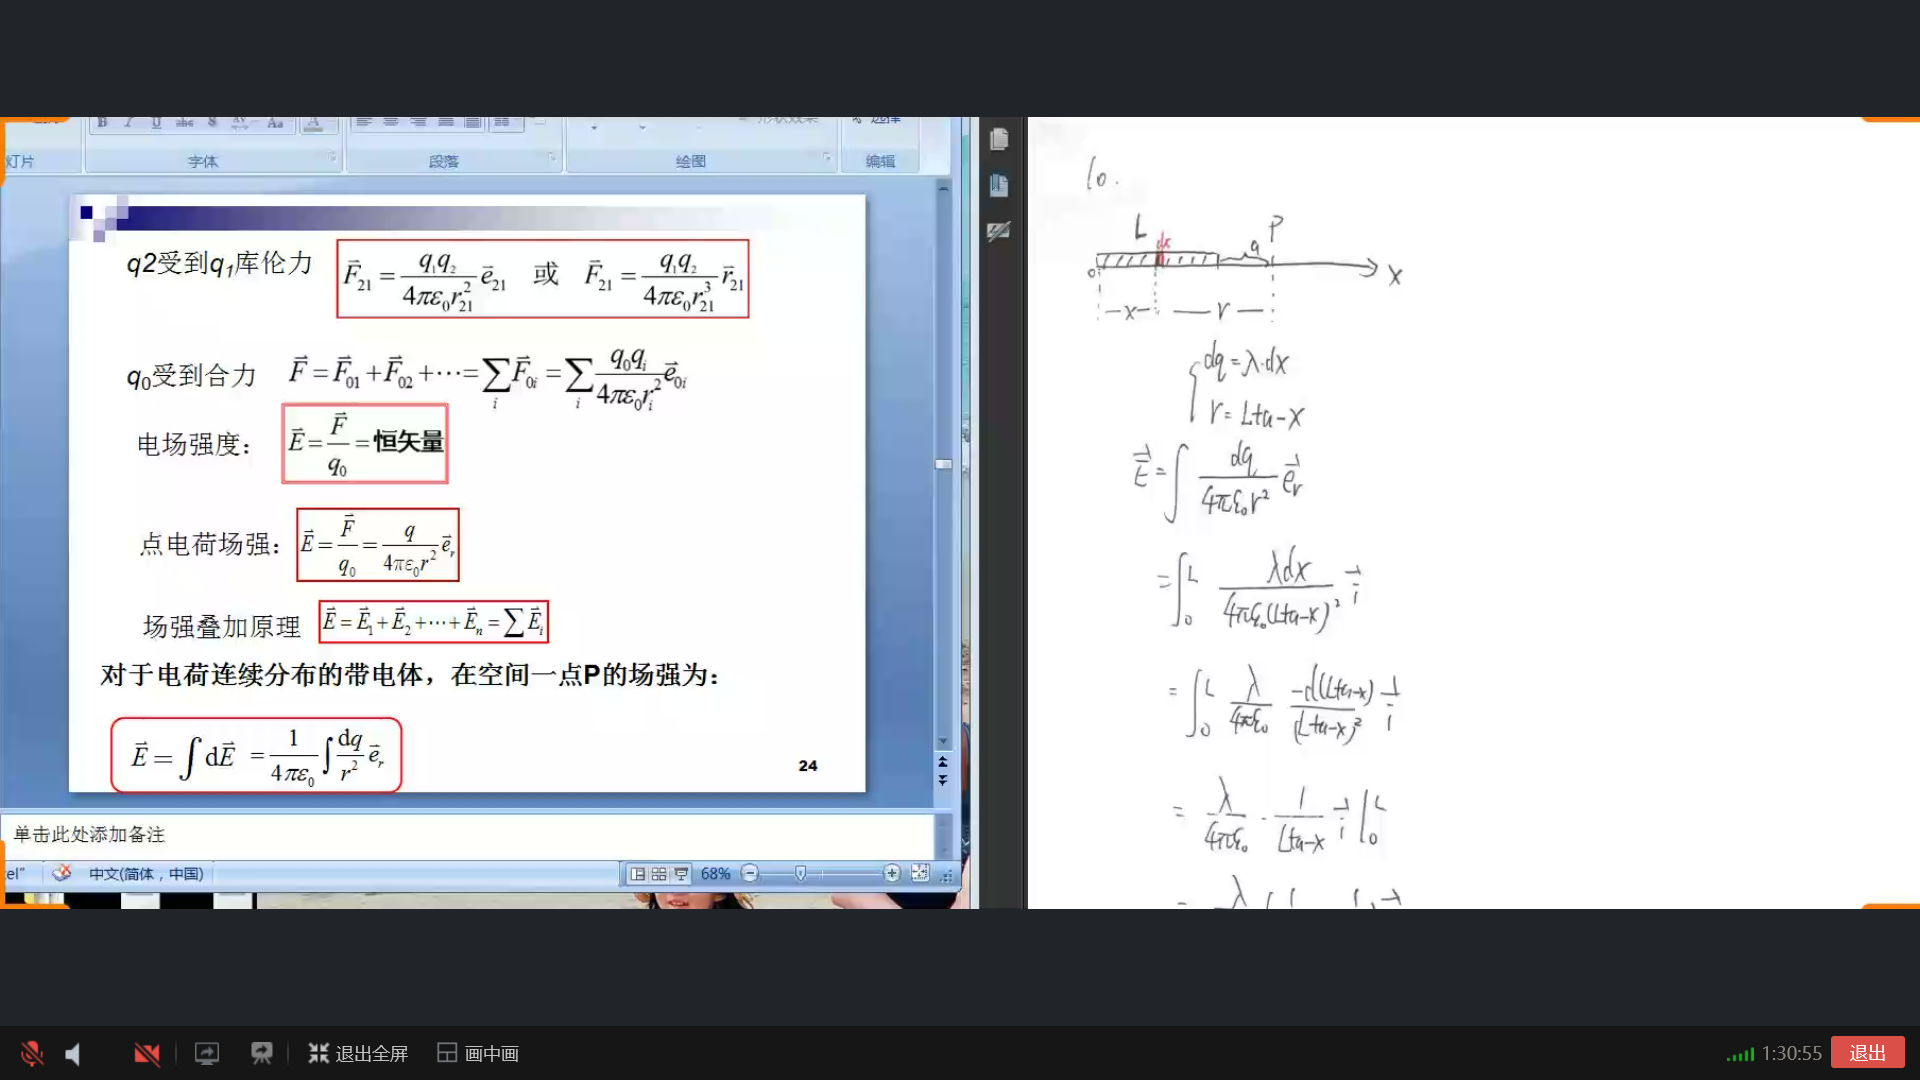 B I U abc S AV Aa A
形状效果
选择
灯片
字体
段落
绘图
编辑
q2受到q₁库伦力
F⃗₂₁ = q₁q₂ / 4πε₀r₂₁² e⃗₂₁ 或 F⃗₂₁ = q₁q₂ / 4πε₀r₂₁³ r⃗₂₁
q₀受到合力 F⃗ = F⃗₀₁ + F⃗₀₂ + ⋯ = ∑ᵢ F⃗₀ᵢ = ∑ᵢ q₀qᵢ / 4πε₀rᵢ² e⃗₀ᵢ
电场强度： E⃗ = F⃗ / q₀ = 恒矢量
点电荷场强： E⃗ = F⃗ / q₀ = q / 4πε₀r² e⃗ᵣ
场强叠加原理 E⃗ = E⃗₁ + E⃗₂ + ⋯ + E⃗ₙ = ∑ E⃗ᵢ
对于电荷连续分布的带电体，在空间一点P的场强为：
E⃗ = ∫ dE⃗ = 1 / 4πε₀ ∫ dq / r² e⃗ᵣ
24
单击此处添加备注
中文(简体，中国)
68%
10.
L dx a P
0 x
x r
dq = λ·dx
r = L+a-x
E⃗ = ∫ dq / 4πε₀r² e⃗ᵣ
= ∫₀ᴸ λdx / 4πε₀(L+a-x)² i⃗
= ∫₀ᴸ λ / 4πε₀ -d(L+a-x) / (L+a-x)² i⃗
= λ / 4πε₀ · 1 / L+a-x i⃗ |₀ᴸ
退出全屏
画中画
1:30:55
退出